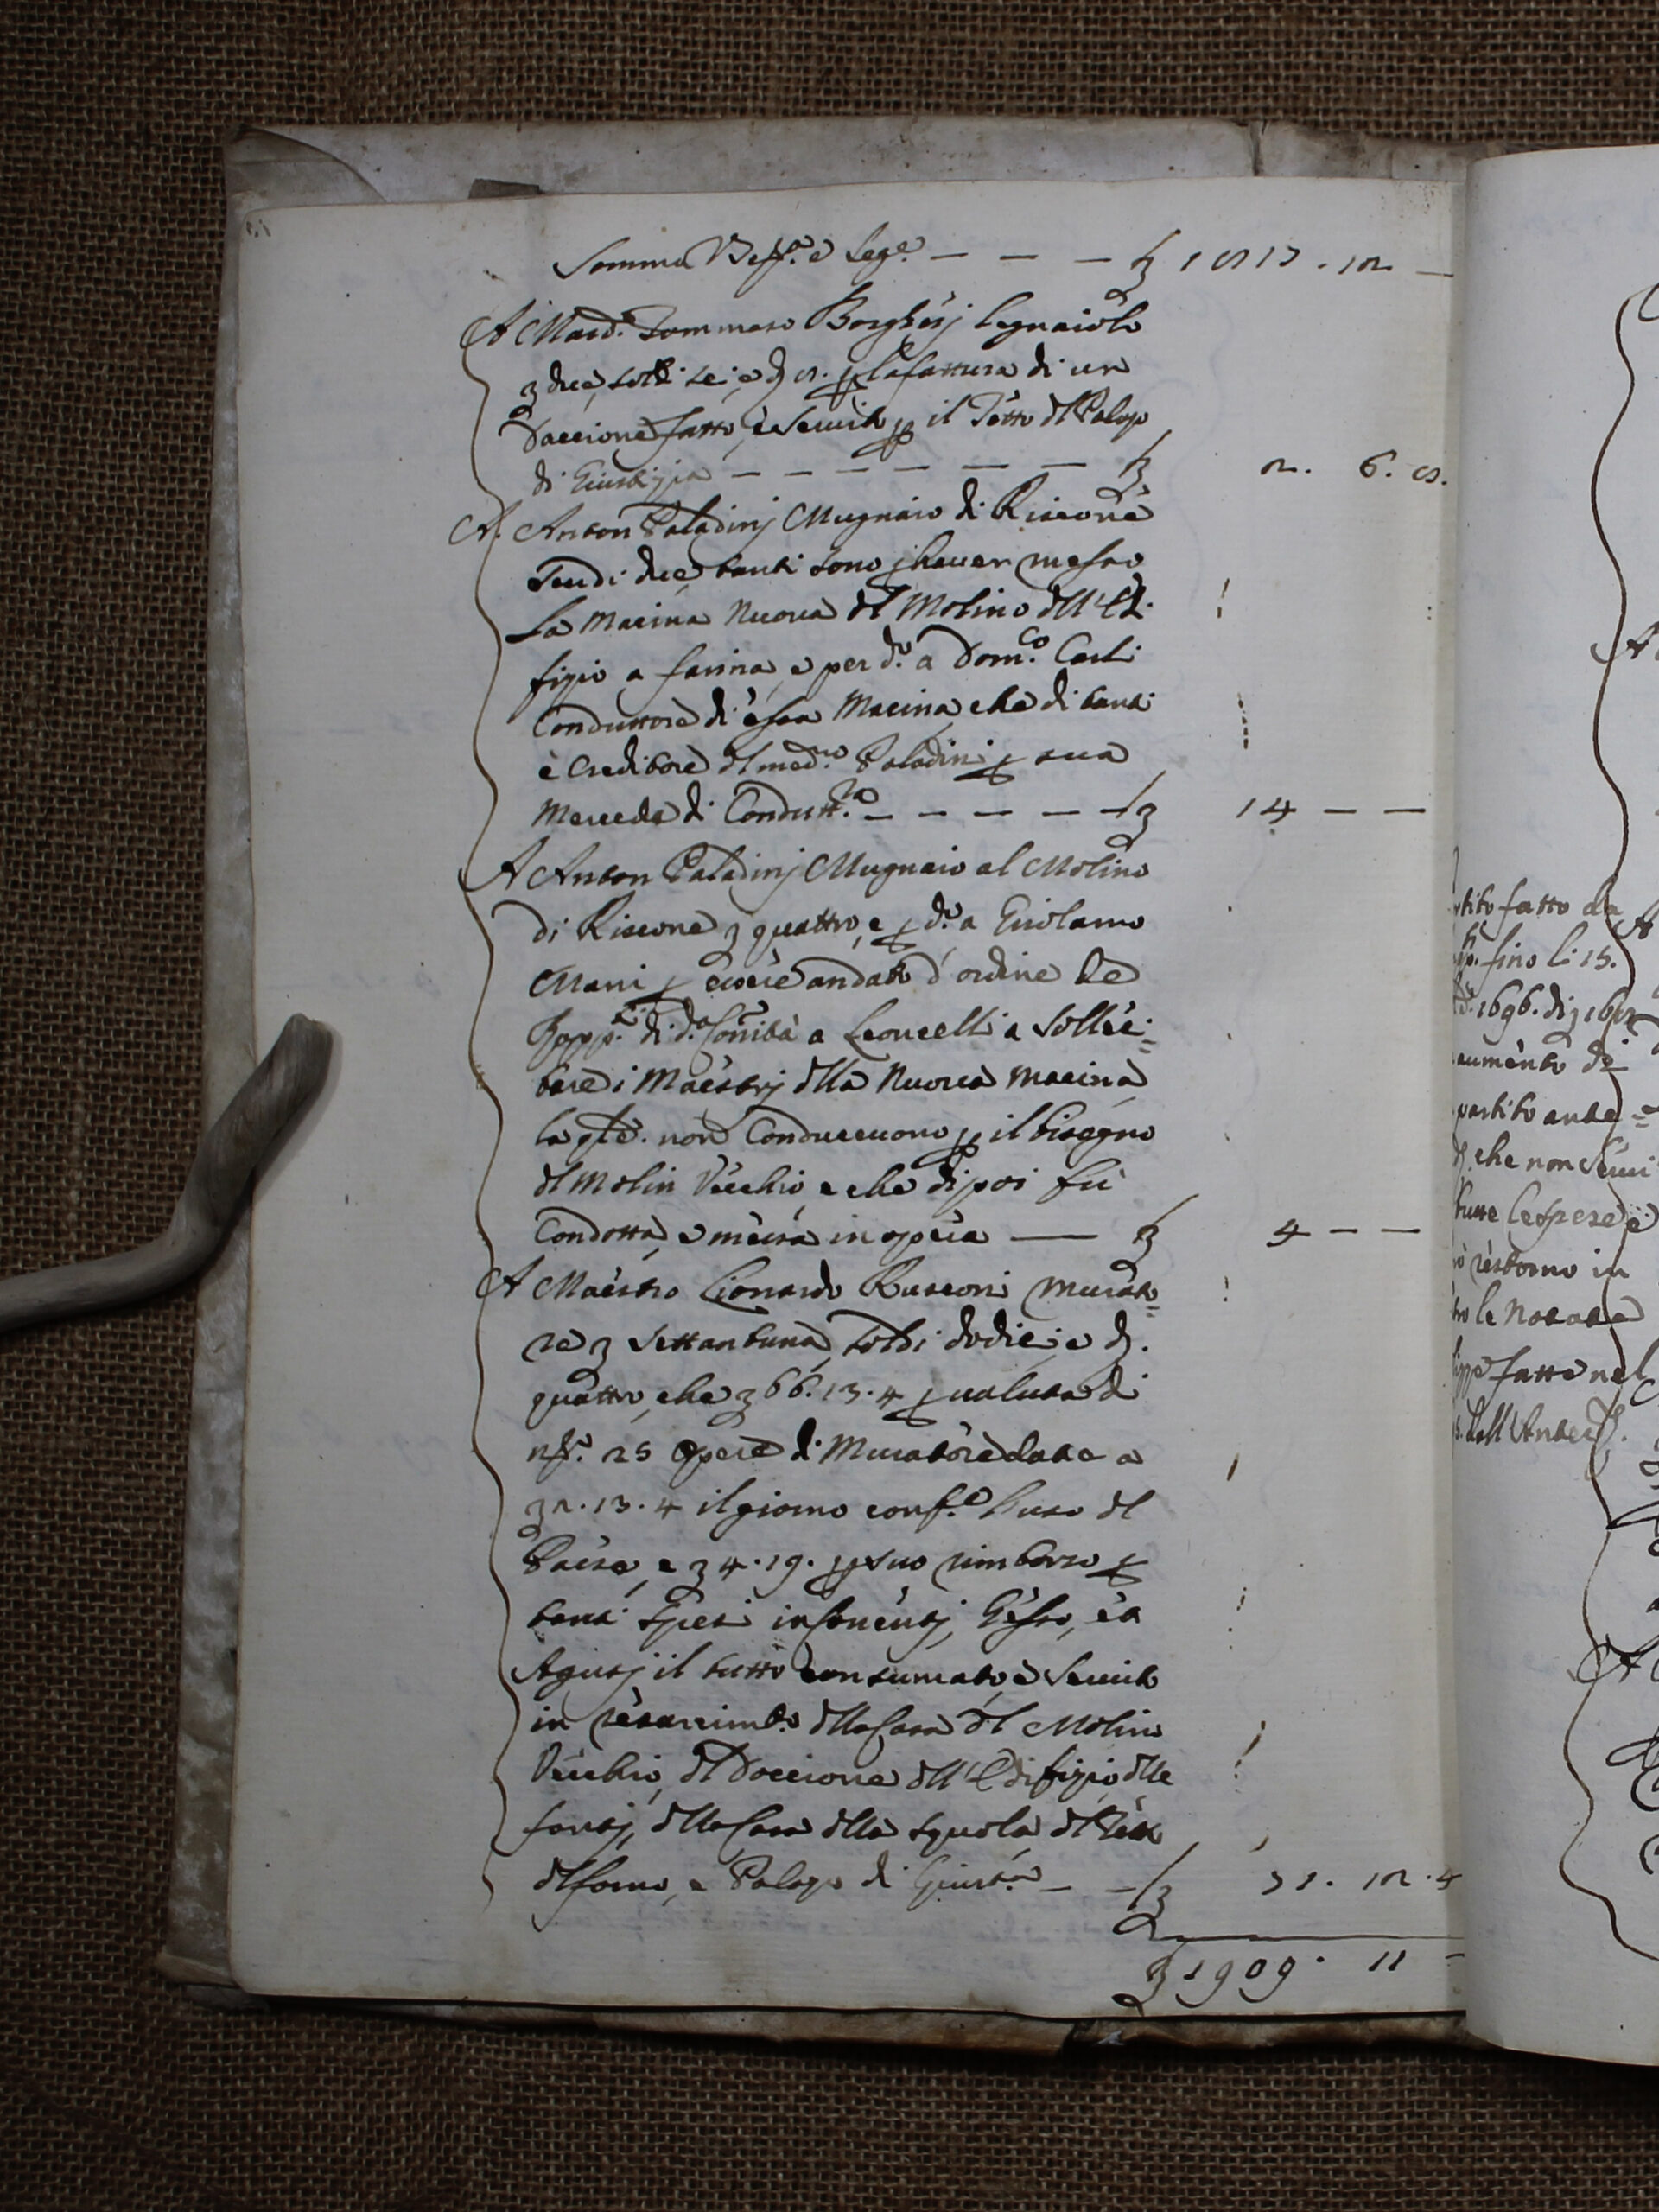 Somma Reff.a e Seg.e — — — £ 1817 . 12 —
A Maes.o Tommaso Borghesj legnaiolo
£ due, soldi sei, e d 8. p la fattura di un
Doccione fatto, e Servito p il Tetto dl Palazo
di Giustizia — — — — — — £ 2. 6. 8.
A. Anton Paladinj Mugnaio di Riscone
Scudi due tanti sono p haver messo
La Macina Nuova dl Molino dll'Edi-
fizio a farina, e per d.o a Dom.co Carli
Conduttore di essa Macina che di tanti
è Creditore dl med.mo Paladini p sua
Mercede di Condutt.ra — — — — £ 14 — —
A Anton Paladinj Mugnaio al Molino
di Riscone £ quattro, e p d.o a Girolamo
Mani p essere andato d'ordine de
Rapp.ti di d.a Com.tà a Leoncelli a Solleci=
tare i Maestrj dlla Nuova Macina
la qle. non Conducevono p il bisogno
dl Molin Vecchio, e che dipoi fù
Condotta, e messa in opera — £ 4 — —
A Maestro Lionardo Rusconi Murato=
re £ Settantuna, soldi dodici, e d.
quattro, che £ 66.13.4 p valuta di
n.o 25 Opere di Muratore date a
£ 2.13.4 il giorno conf.e l'uso dl
Paese, e £ 4.19. p suo rimborso p
tanti Spesi in Gesso, et
Agutj il tutto consumato, e Servito
in resarcim.to dlla Casa dl Molino
Vecchio, dl Doccione dll'Edifizio, dlle
fontj, dlla Casa dlla Squola dl Tetto
dl forno, e Palazo di Giust.a — — £ 71. 12. 4
£ 1909. 11 —
partito fatto da
fino li 15.
1696.
aumento di
partito ante=
che non Servi
tutte le spese e
restorno in
le Notate
fatte nel
dall'Anteced.